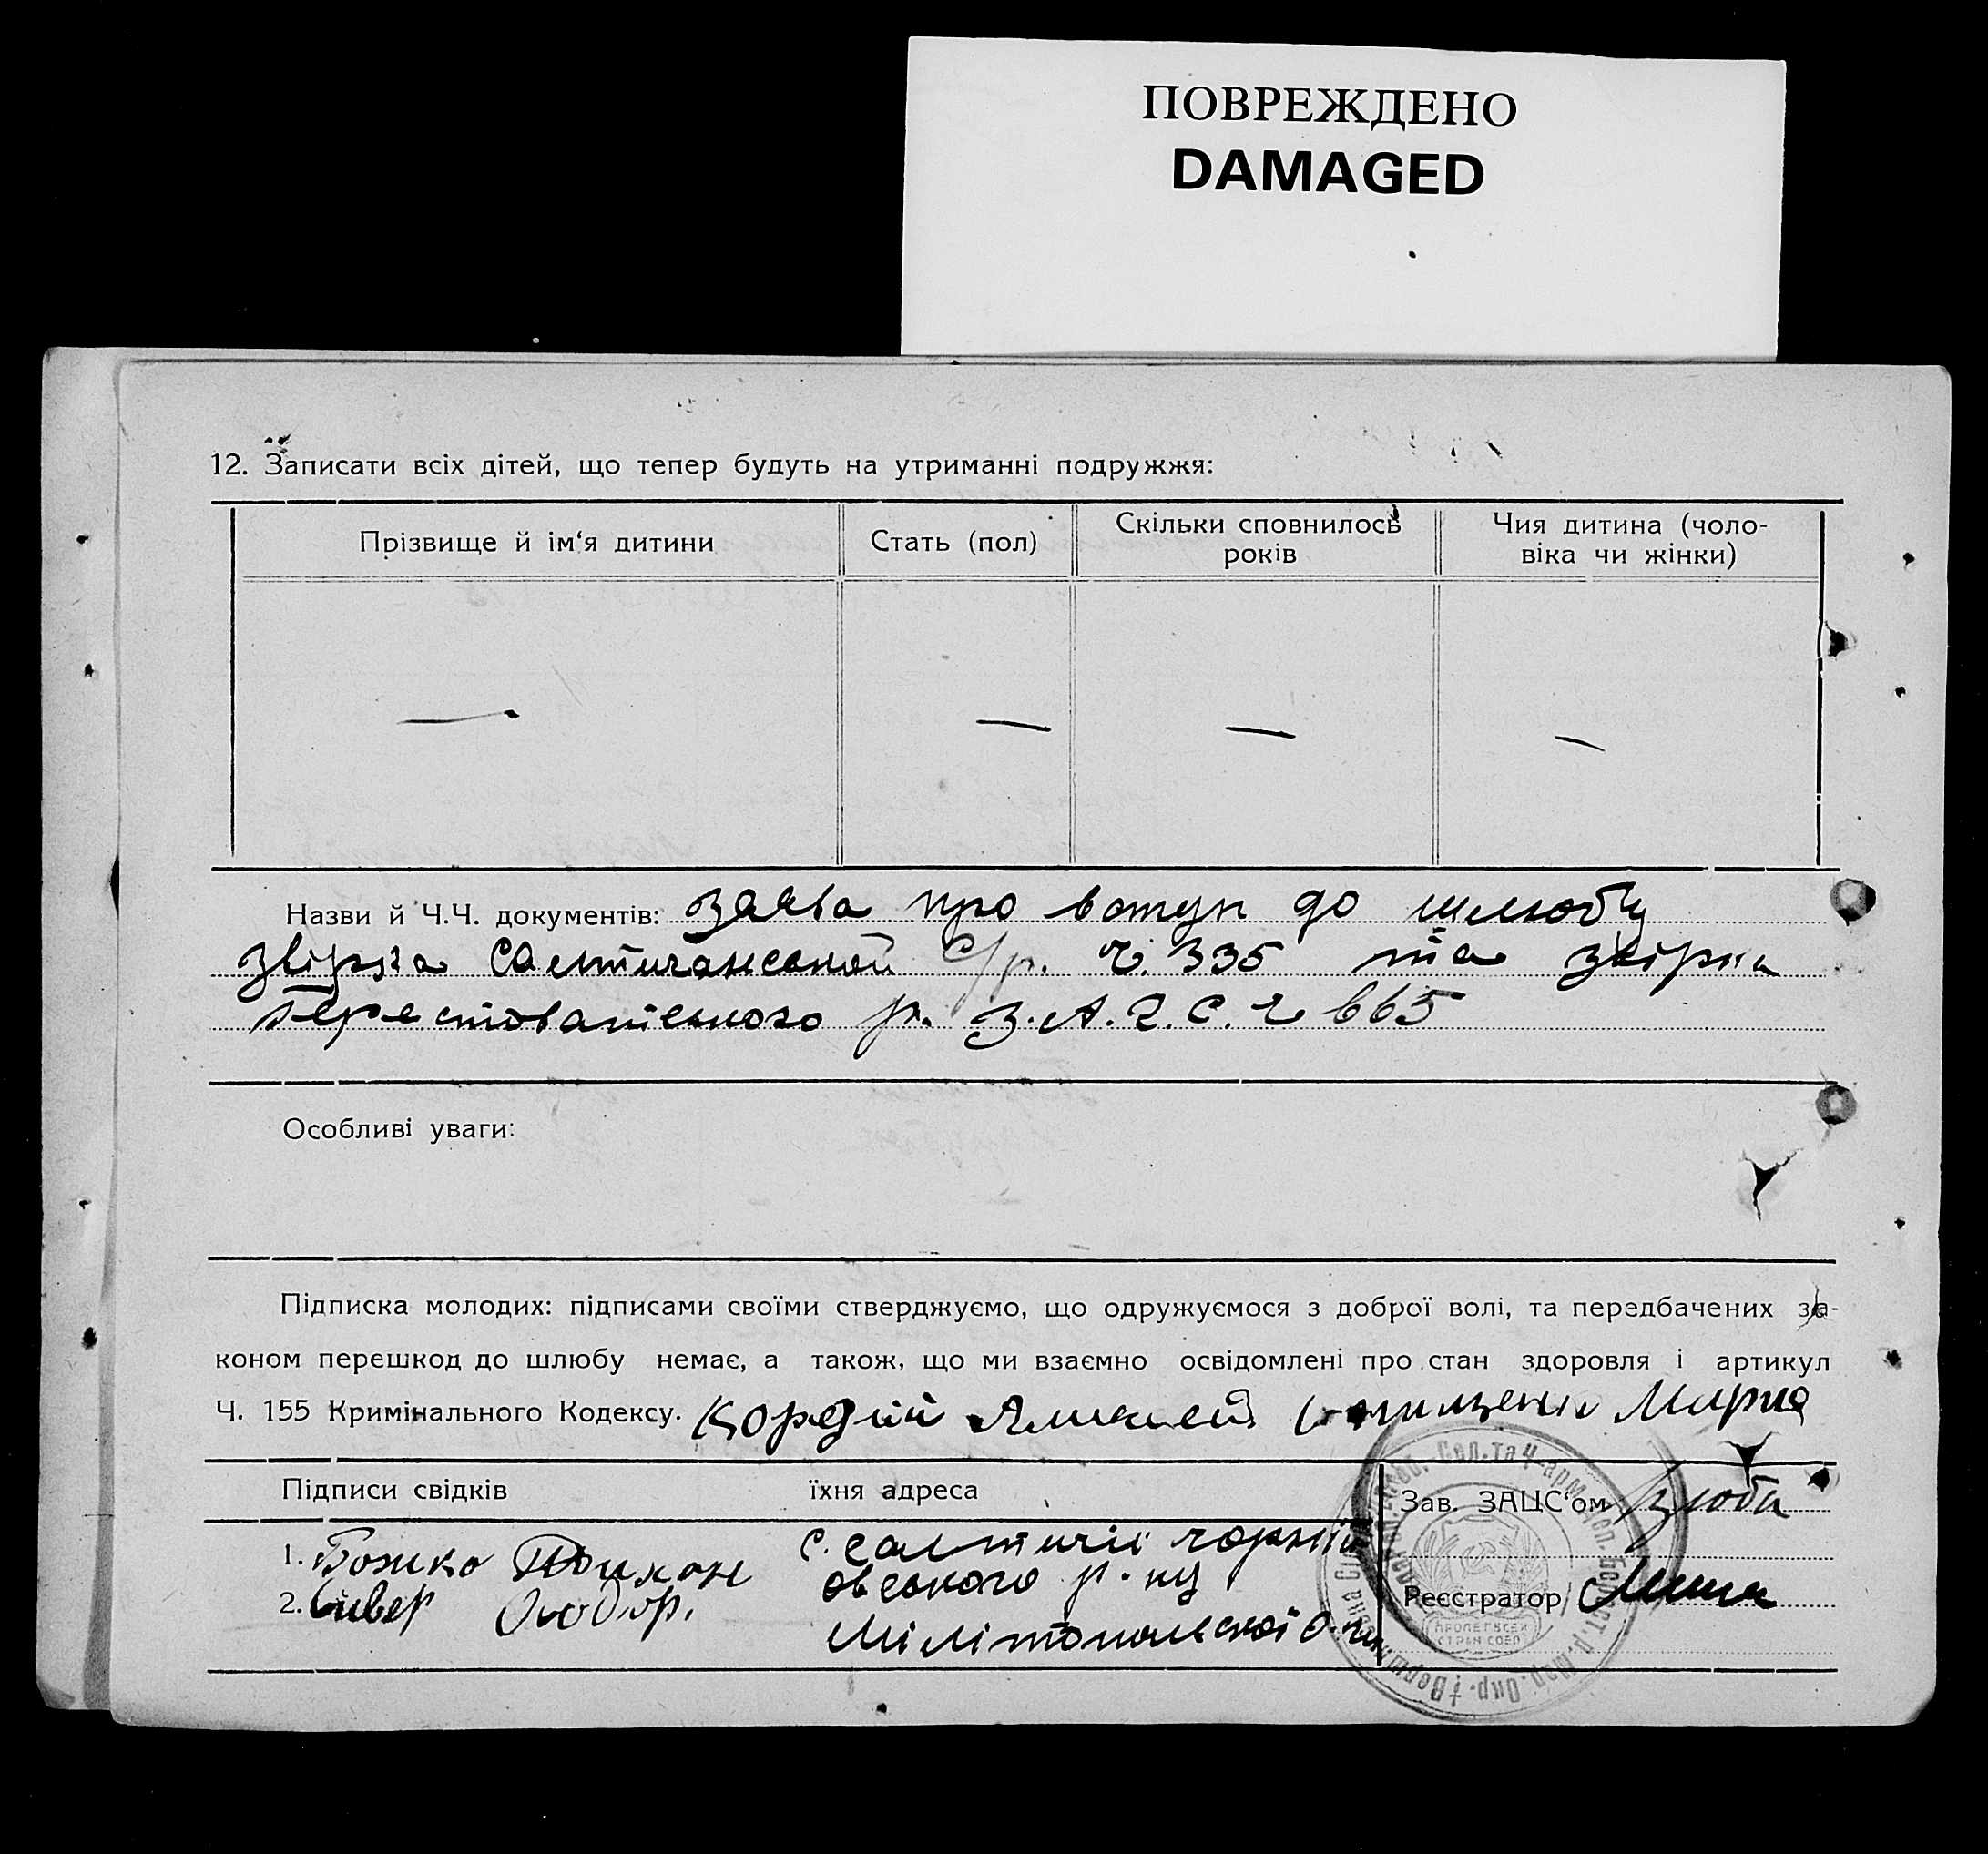 ПОВРЕЖДЕНО
DAMAGED
12. Записати всіх дітей, що тепер будуть на утриманні подружжя:
Прізвище й ім‘я дитини
Стать (пол)
Скільки сповнилось
років
Чия дитина (чоло-
віка чи жінки)
— — — —
Назви й Ч.Ч. документів: заява про вступ до шлюбу
звірка Салтичанської С/р. ч. 335 та звірка
р. З.А.Г.С. ч 665
Особливі уваги:
Підписка молодих: підписами своїми стверджуємо, що одружуємося з доброї волі, та передбачених за-
коном перешкод до шлюбу немає, а також, що ми взаємно освідомлені про стан здоровля і артикул
Ч. 155 Кримінального Кодексу. Кордий Алексей Мария
Підписи свідків
їхня адреса
Зав. ЗАЦС‘ом
1. Божко Тихон
с. Салтичії
2. Сивер
овського р-ну
Мілітопольскої
Реєстратор